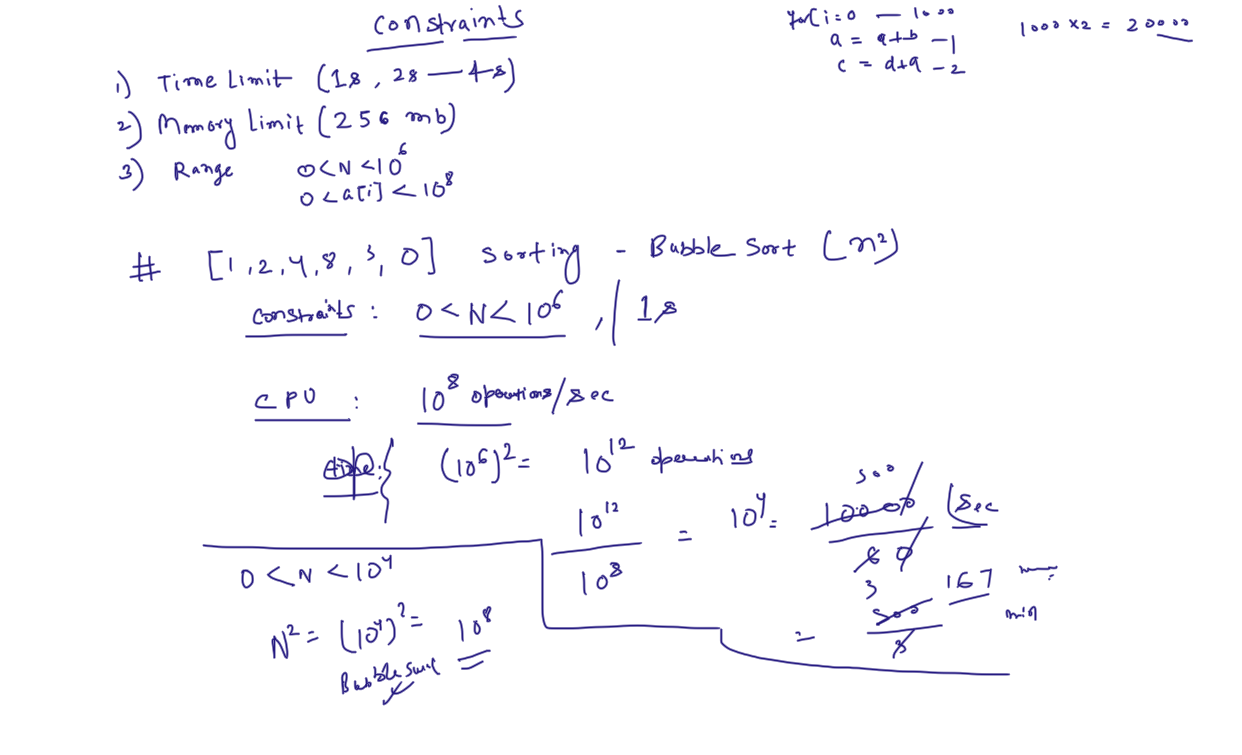 Constraints
for(i=0 — 10000
a = a+b - 1
c = d+a - 2
1000 x2 = 20000
1) Time Limit (1s, 2s — 4s)
2) Memory Limit (256 mb)
3) Range 0<N<10^6
0<a[i]<10^8
# [1,2,4,8,3,0] Sorting - Bubble Sort (n²)
Constraints : 0<N<10^6, / 1s
CPU : 10^8 operations/sec
(10^6)² = 10^12 operations
10^12 / 10^8 = 10^4 = 10000 / 60 500 1sec
0<N<10^4
N² = (10^4)² = 10^8
Bubble Sort
= 500 / 3 167 min